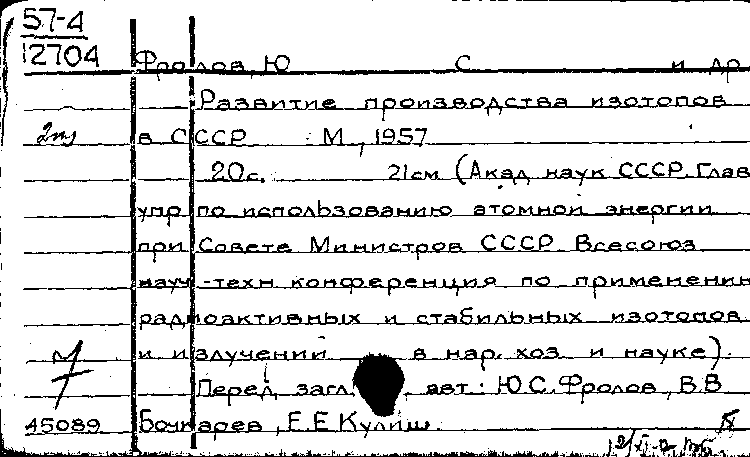 57-4
12704
Фролов, Ю С и др
Развитие производства изотопов
2
в СССР М., 1957
20с. 21см (Акад наук СССР. Глав
упр по использованию атомной энергии
при Совете Министров СССР. Всесоюз
науч.-техн конференция по применению
радиоактивных и стабильных изотопов
и излучений в нар. хоз и науке).
Перед загл. авт.: Ю.С. Фролов, В.В
45089 Бочкарев, Е.Е Кулиш.